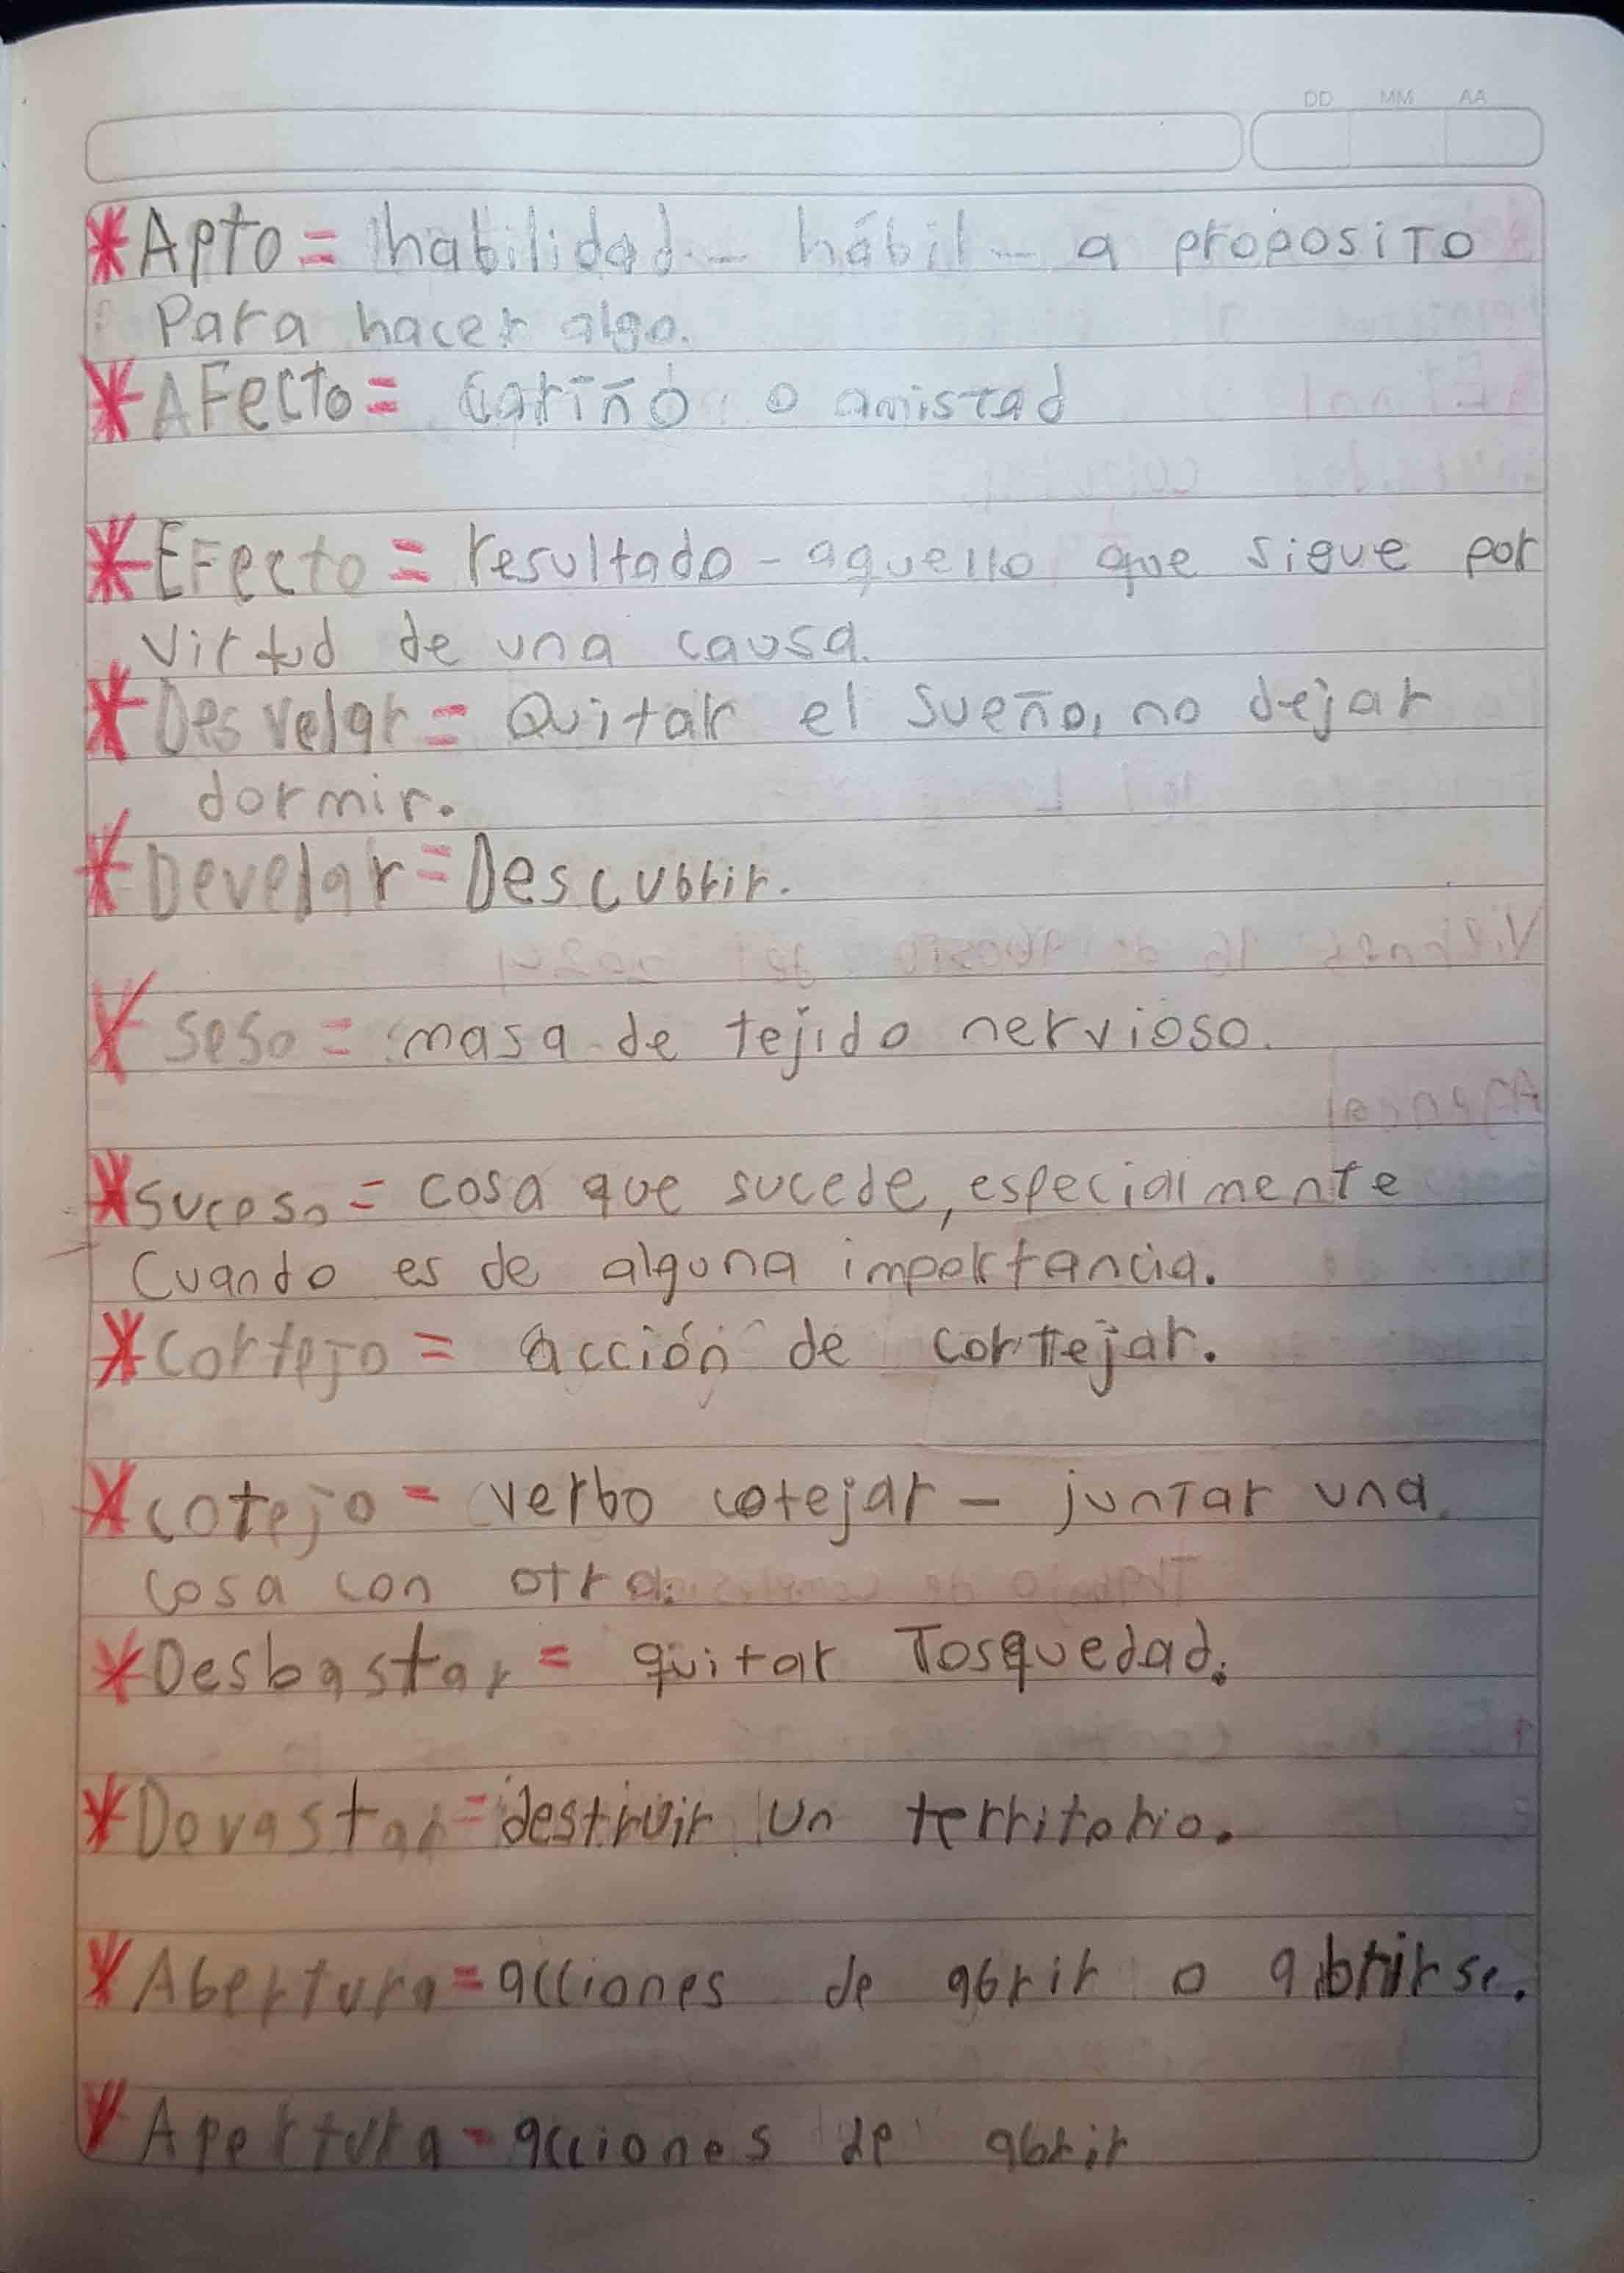 DD MM AA
*Apto = habilidad - hábil - a proposito
Para hacer algo.
*AFecto = cariño o amistad
*EFecto = resultado - aquello que sigue por
virtud de una causa.
*Desvelar = Quitar el sueño, no dejar
dormir.
*Develar = Descubrir.
*seso = masa de tejido nervioso.
*suceso = cosa que sucede, especialmente
Cuando es de alguna importancia.
*cortejo = acción de cortejar.
*cotejo = verbo cotejar - juntar una
cosa con otra.
*Desbastar = quitar Tosquedad.
*Devastar = destruir un territorio.
*Abertura = acciones de abrir o abrirse.
*Apertura = acciones de abrir